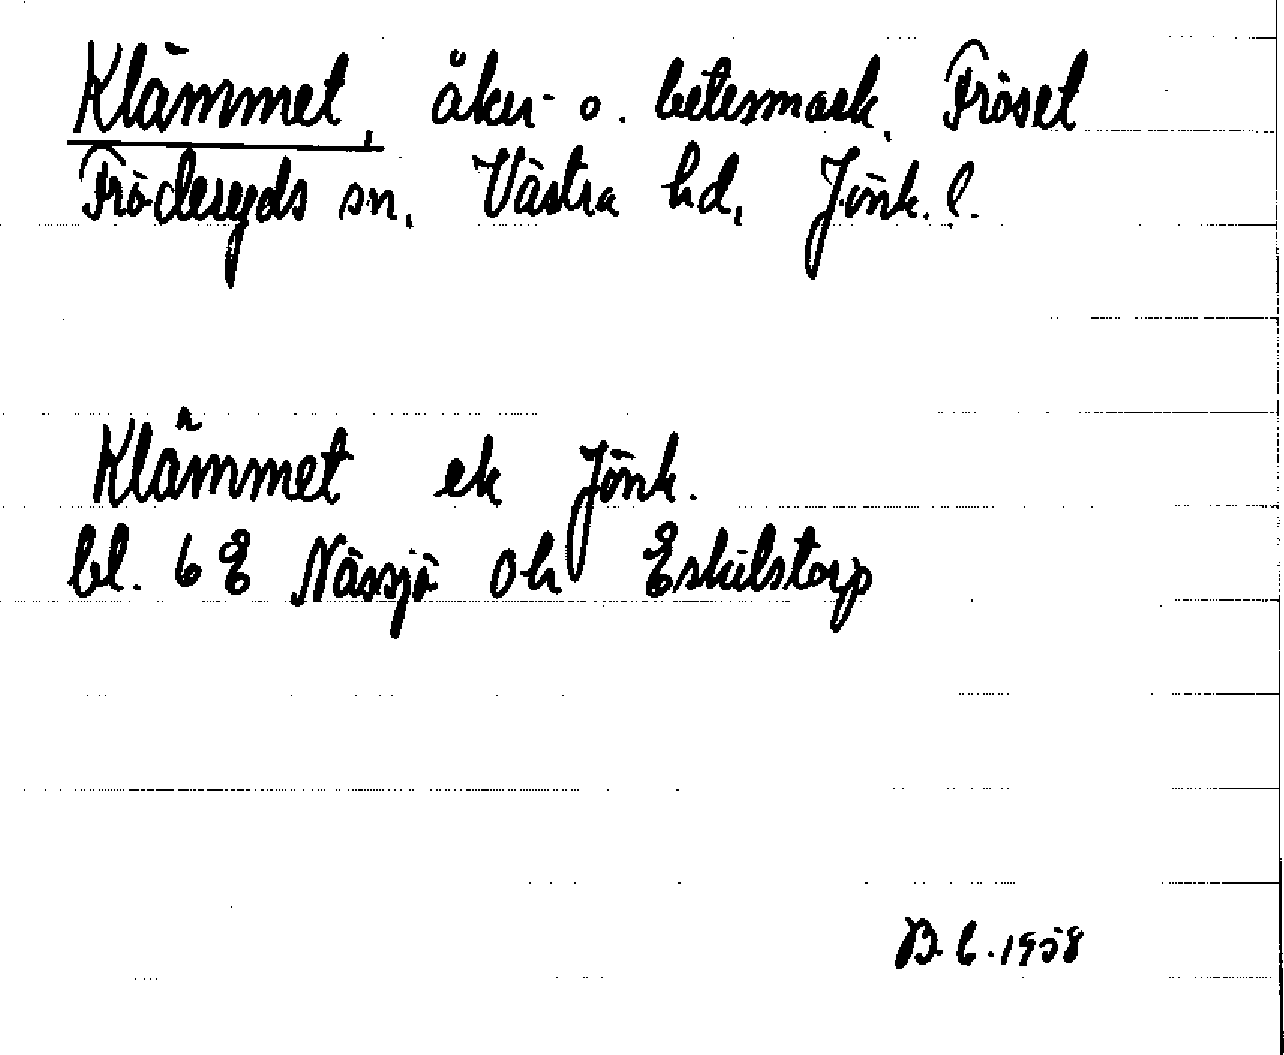 Klämmet, åker- o. betesmark, Fröset
Fröderyds sn, Västra hd, Jönk. l.
Klämmet ek Jönk.
bl. 6 E Nässjö Oh Eskilstorp
B. C. 1958